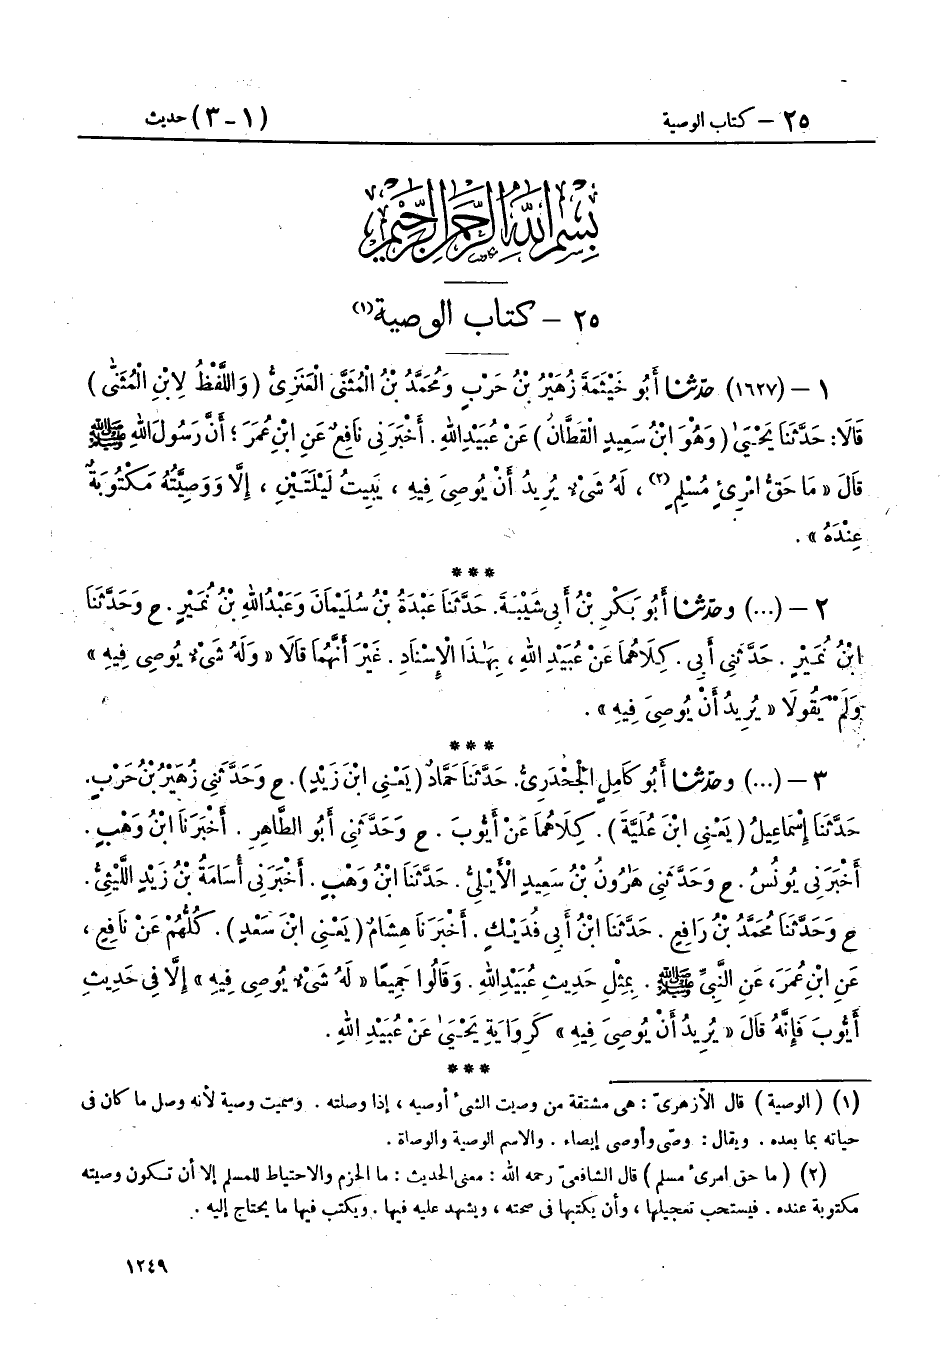 ٢٥ – كتاب الوصية (١ – ٣) حديث
بِسْمِ اللهِ الرَّحْمٰنِ الرَّحِيمِ
٢٥ – كتاب الوصية(١)
١ – (١٦٢٧) حدّثنا أَبُو خَيْثَمَةَ زُهَيْرُ بْنُ حَرْبٍ وَمُحَمَّدُ بْنُ الْمُثَنَّى الْعَنَزِىُّ (وَاللَّفْظُ لِابْنِ الْمُثَنَّى)
قَالَا: حَدَّثَنَا يَحْيَىٰ (وَهُوَ ابْنُ سَعِيدٍ القَطَّانُ) عَنْ عُبَيْدِاللهِ. أَخْبَرَنِى نَافِعٌ عَنِ ابْنِ عُمَرَ؛ أَنَّ رَسُولَ اللهِ ﷺ
قَالَ «مَا حَقُّ امْرِئٍ مُسْلِمٍ(٢)، لَهُ شَىْءٌ يُرِيدُ أَنْ يُوصِىَ فِيهِ، يَبِيتُ لَيْلَتَيْنِ، إِلَّا وَوَصِيَّتُهُ مَكْتُوبَةٌ
عِنْدَهُ».
***
٢ – (...) وحدّثنا أَبُو بَكْرِ بْنُ أَبِى شَيْبَةَ. حَدَّثَنَا عَبْدَةُ بْنُ سُلَيْمَانَ وَعَبْدُاللهِ بْنُ نُمَيْرٍ. ح وَحَدَّثَنَا
ابْنُ نُمَيْرٍ. حَدَّثَنِى أَبِى. كِلَاهُمَا عَنْ عُبَيْدِ اللهِ، بِهَـٰذَا الْإِسْنَادِ. غَيْرَ أَنَّهُمَا قَالَا «وَلَهُ شَىْءٌ يُوصِى فِيهِ»
وَلَمْ يَقُولَا «يُرِيدُ أَنْ يُوصِىَ فِيهِ».
***
٣ – (...) وحدّثنا أَبُو كَامِلٍ الْجَحْدَرِىُّ. حَدَّثَنَا حَمَّادٌ (يَعْنِى ابْنَ زَيْدٍ). ح وَحَدَّثَنِى زُهَيْرُ بْنُ حَرْبٍ.
حَدَّثَنَا إِسْمَاعِيلُ (يَعْنِى ابْنَ عُلَيَّةَ). كِلَاهُمَا عَنْ أَيُّوبَ. ح وَحَدَّثَنِى أَبُو الطَّاهِرِ. أَخْبَرَنَا ابْنُ وَهْبٍ.
أَخْبَرَنِى يُونُسُ. ح وَحَدَّثَنِى هَارُونُ بْنُ سَعِيدٍ الْأَيْلِىُّ. حَدَّثَنَا ابْنُ وَهْبٍ. أَخْبَرَنِى أُسَامَةُ بْنُ زَيْدٍ اللَّيْثِىُّ.
ح وَحَدَّثَنَا مُحَمَّدُ بْنُ رَافِعٍ. حَدَّثَنَا ابْنُ أَبِى فُدَيْكٍ. أَخْبَرَنَا هِشَامٌ (يَعْنِى ابْنَ سَعْدٍ). كُلُّهُمْ عَنْ نَافِعٍ،
عَنِ ابْنِ عُمَرَ، عَنِ النَّبِىِّ ﷺ. بِمِثْلِ حَدِيثِ عُبَيْدِاللهِ. وَقَالُوا جَمِيعًا «لَهُ شَىْءٌ يُوصِى فِيهِ» إِلَّا فِى حَدِيثِ
أَيُّوبَ فَإِنَّهُ قَالَ «يُرِيدُ أَنْ يُوصِىَ فِيهِ» كَرِوَايَةِ يَحْيَىٰ عَنْ عُبَيْدِ اللهِ.
***
(١) (الوصية) قال الأزهرىّ: هى مشتقة من وصيت الشىء أوصيه، إذا وصلته. وسميت وصية لأنه وصل ما كان فى
حياته بما بعده. ويقال: وصّى وأوصى إيصاء. والاسم الوصية والوصاة.
(٢) (ما حق امرىء مسلم) قال الشافعىّ رحمه الله: معنى الحديث: ما الحزم والاحتياط للمسلم إلا أن تكون وصيته
مكتوبة عنده. فيستحب تعجيلها، وأن يكتبها فى صحته، ويشهد عليه فيها. ويكتب فيها ما يحتاج إليه.
١٢٤٩